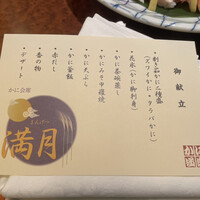 御献立
・刺し盛かに三種盛
(ズワイがに・タラバがに)
・花氷(かに御刺身)
・かに茶碗蒸し
・かにみそ甲羅焼
・かに天ぷら
・かに釜飯
・赤だし
・香の物
・デザート
かに会席
満月